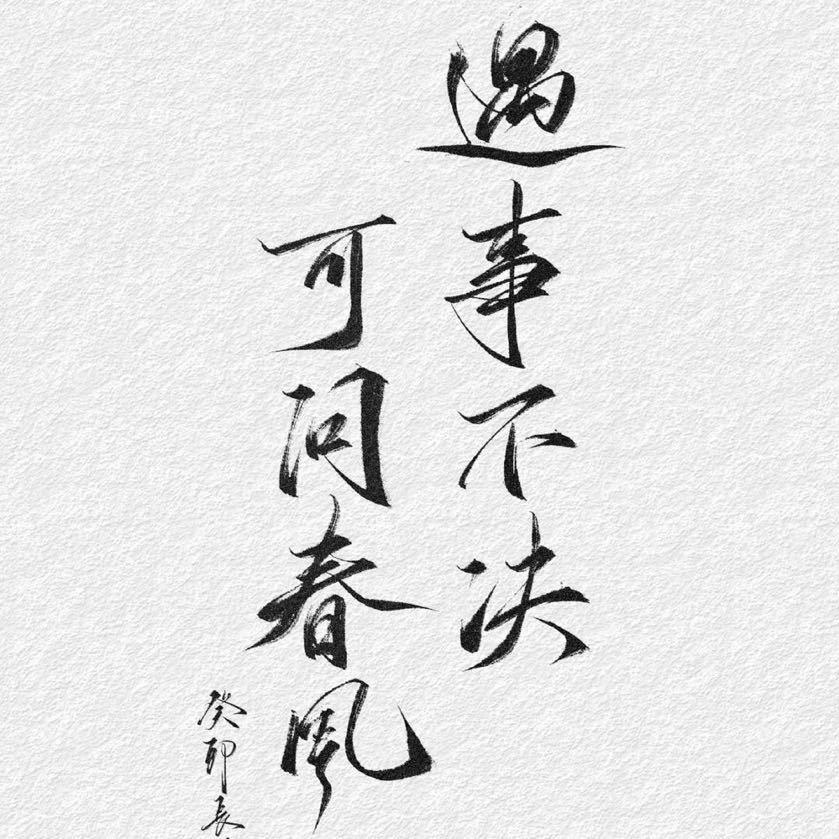 遇事不决
可问春风
癸卯長